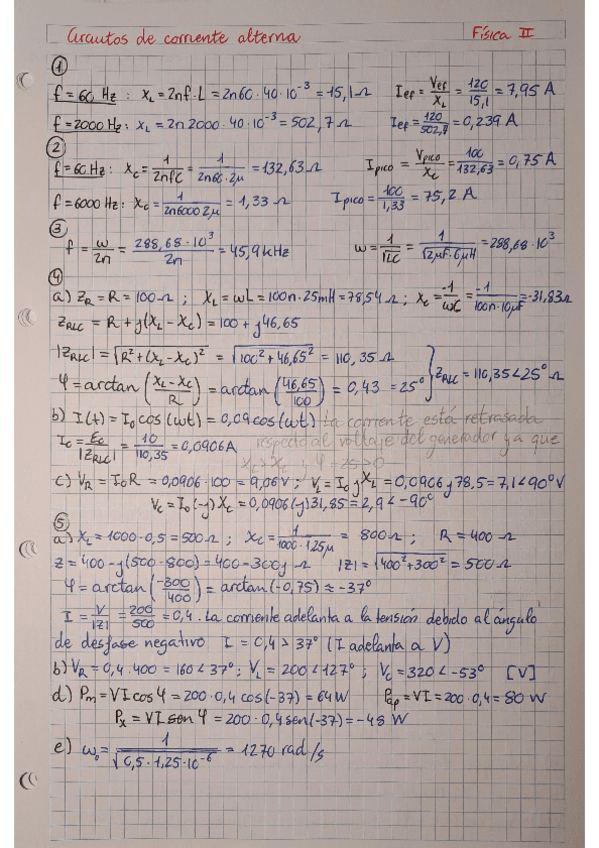 Circuitos de corriente alterna Física II
①
f = 60 Hz : X_L = 2πf·L = 2π60·40·10⁻³ = 15,1 Ω I_ef = V_ef/X_L = 120/15,1 = 7,95 A
f = 2000 Hz : X_L = 2π2000·40·10⁻³ = 502,7 Ω I_ef = 120/502,7 = 0,239 A
②
f = 60 Hz : X_C = 1/2πfC = 1/2π60·2μ = 132,63 Ω I_pico = V_pico/X_C = 100/132,63 = 0,75 A
f = 6000 Hz : X_C = 1/2π6000 2μ = 1,33 Ω I_pico = 100/1,33 = 75,2 A
③
f = ω/2π = 288,68·10³/2π = 45,9 kHz ω = 1/√LC = 1/√2μF·6μH = 288,68·10³
④
a) Z_R = R = 100 Ω ; X_L = ωL = 100π·25mH = 78,54 Ω ; X_C = -1/ωC = -1/100π·10μF = -31,83 Ω
Z_RLC = R + j(X_L - X_C) = 100 + j46,65
|Z_RLC| = √R² + (X_L - X_C)² = √100² + 46,65² = 110,35 Ω
φ = arctan(X_L - X_C/R) = arctan(46,65/100) = 0,43 = 25° } Z_RLC = 110,35 < 25° Ω
b) I(t) = I₀ cos(ωt) = 0,09 cos(ωt) La corriente está retrasada
I₀ = E₀/|Z_RLC| = 10/110,35 = 0,0906 A respecto al voltaje del generador ya que
X_L > X_C y φ = 25 > 0
c) V_R = I₀R = 0,0906·100 = 9,06 V ; V_L = I₀ j X_L = 0,0906 j 78,5 = 7,1 < 90° V
V_C = I₀(-j) X_C = 0,0906(-j) 31,85 = 2,9 < -90°
⑤
a) X_L = 1000·0,5 = 500 Ω ; X_C = 1/1000·1,25μ = 800 Ω ; R = 400 Ω
Z = 400 - j(500 - 800) = 400 - 300j Ω |Z| = √400² + 300² = 500 Ω
φ = arctan(-300/400) = arctan(-0,75) ≈ -37°
I = V/|Z| = 200/500 = 0,4 . La corriente adelanta a la tensión debido al ángulo
de desfase negativo I = 0,4 > 37° (I adelanta a V)
b) V_R = 0,4·400 = 160 < 37° ; V_L = 200 < 127° ; V_C = 320 < -53° [V]
d) P_m = VI cos φ = 200·0,4 cos(-37) = 64 W P_ap = VI = 200·0,4 = 80 W
P_x = VI sen φ = 200·0,4 sen(-37) = -48 W
e) ω₀ = 1/√0,5·1,25·10⁻⁶ = 1270 rad/s